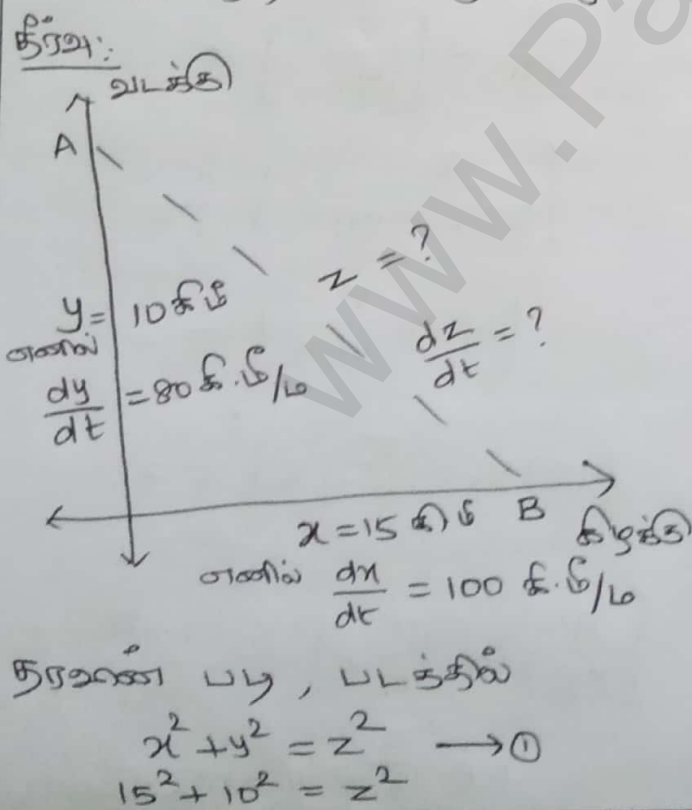 தீர்வு:
வடக்கு
A
z = ?
y = 10 கிமீ
எனில்
dy/dt = 80 கி.மீ/ம
dz/dt = ?
x = 15 கிமீ B கிழக்கு
எனில் dx/dt = 100 கி.மீ/ம
படி, படத்தில்
x² + y² = z² → ①
15² + 10² = z²
www.Pa